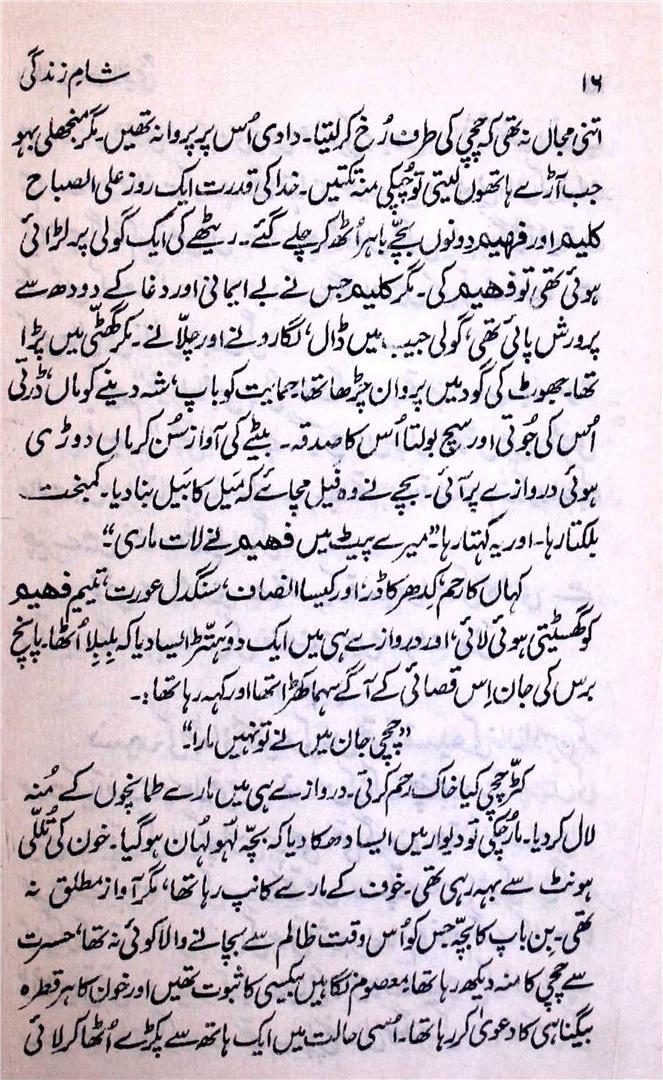 ۱۶
شامِ زندگی
اتنی مجال نہ تھی کہ چچی کی طرف رُخ کر لیتا۔ دادی اُس پر پروانہ تھیں۔ مگر منجھلی بہو
جب آڑے ہاتھوں لیتی تو چُپکی منہ تکتیں۔ خدا کی قدرت ایک روز علی الصباح
کلیم اور فہیم دونوں بچّے باہر اُٹھ کر چلے گئے۔ ریٹھے کی ایک گولی پر لڑائی
ہوئی تھی تو فہیم کی۔ مگر کلیم جس نے بے ایمانی اور دغا کے دودھ سے
پرورش پائی تھی، گولی جیب میں ڈال، لگا رونے اور چلّانے۔ مکر گھٹّی میں پڑا
تھا۔ جھوٹ کی گود میں پروان چڑھا تھا۔ حمایت کو باپ، شہ دینے کو ماں، ڈرتی
اُس کی جُوتی اور سچ بولتا اُس کا صدقہ۔ بیٹے کی آواز سُن کر ماں دوڑی
ہوئی دروازے پر آئی۔ بچے نے وہ فیل مچائے کہ مَیل کا بَیل بنا دیا۔ کمبخت
بلکتا رہا۔ اور یہ کہتا رہا۔ ”میرے پیٹ میں فہیم نے لات ماری“۔
کہاں کا رحم، کِدھر کا ڈر، اور کیسا انصاف، سنگدل عورت، یتیم فہیم
کو گھسیٹتی ہوئی لائی، اور دروازے ہی میں ایک دوہتّڑ ایسا دیا کہ بِلبِلا اُٹھا۔ پانچ
برس کی جان اِس قصائی کے آگے سہما کھڑا تھا اور کہہ رہا تھا:۔
”چچی جان میں نے تو نہیں مارا“۔
کٹّر چچی کیا خاک رحم کرتی۔ دروازے ہی میں مارے طمانچوں کے مُنہ
لال کر دیا۔ مار چُکی تو دیوار میں ایسا دھکا دیا کہ بچّہ لہو لُہان ہو گیا۔ خون کی تُللّی
ہونٹ سے بہہ رہی تھی۔ خوف کے مارے کانپ رہا تھا، مگر آواز مطلق نہ
تھی۔ بِن باپ کا بچّہ جس کو اُس وقت ظالم سے بچانے والا کوئی نہ تھا، حسرت
سے چچی کا منہ دیکھ رہا تھا۔ معصوم نگاہیں بیکسی کا ثبوت تھیں اور خون کا ہر قطرہ
بیگناہی کا دعویٰ کر رہا تھا۔ اُسی حالت میں ایک ہاتھ سے پکڑے اُٹھا کر لائی